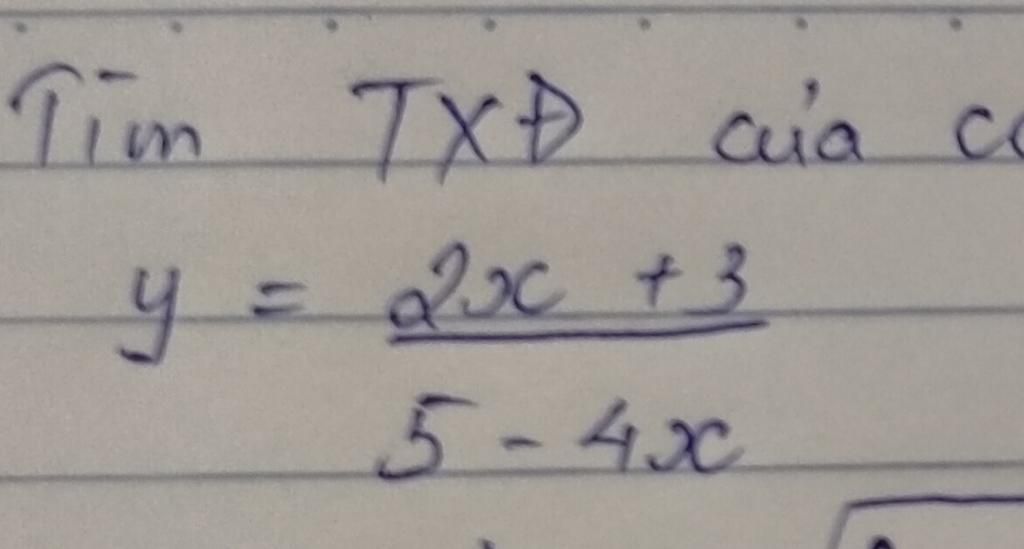 Tìm TXĐ của
y = 2x + 3
5 - 4x